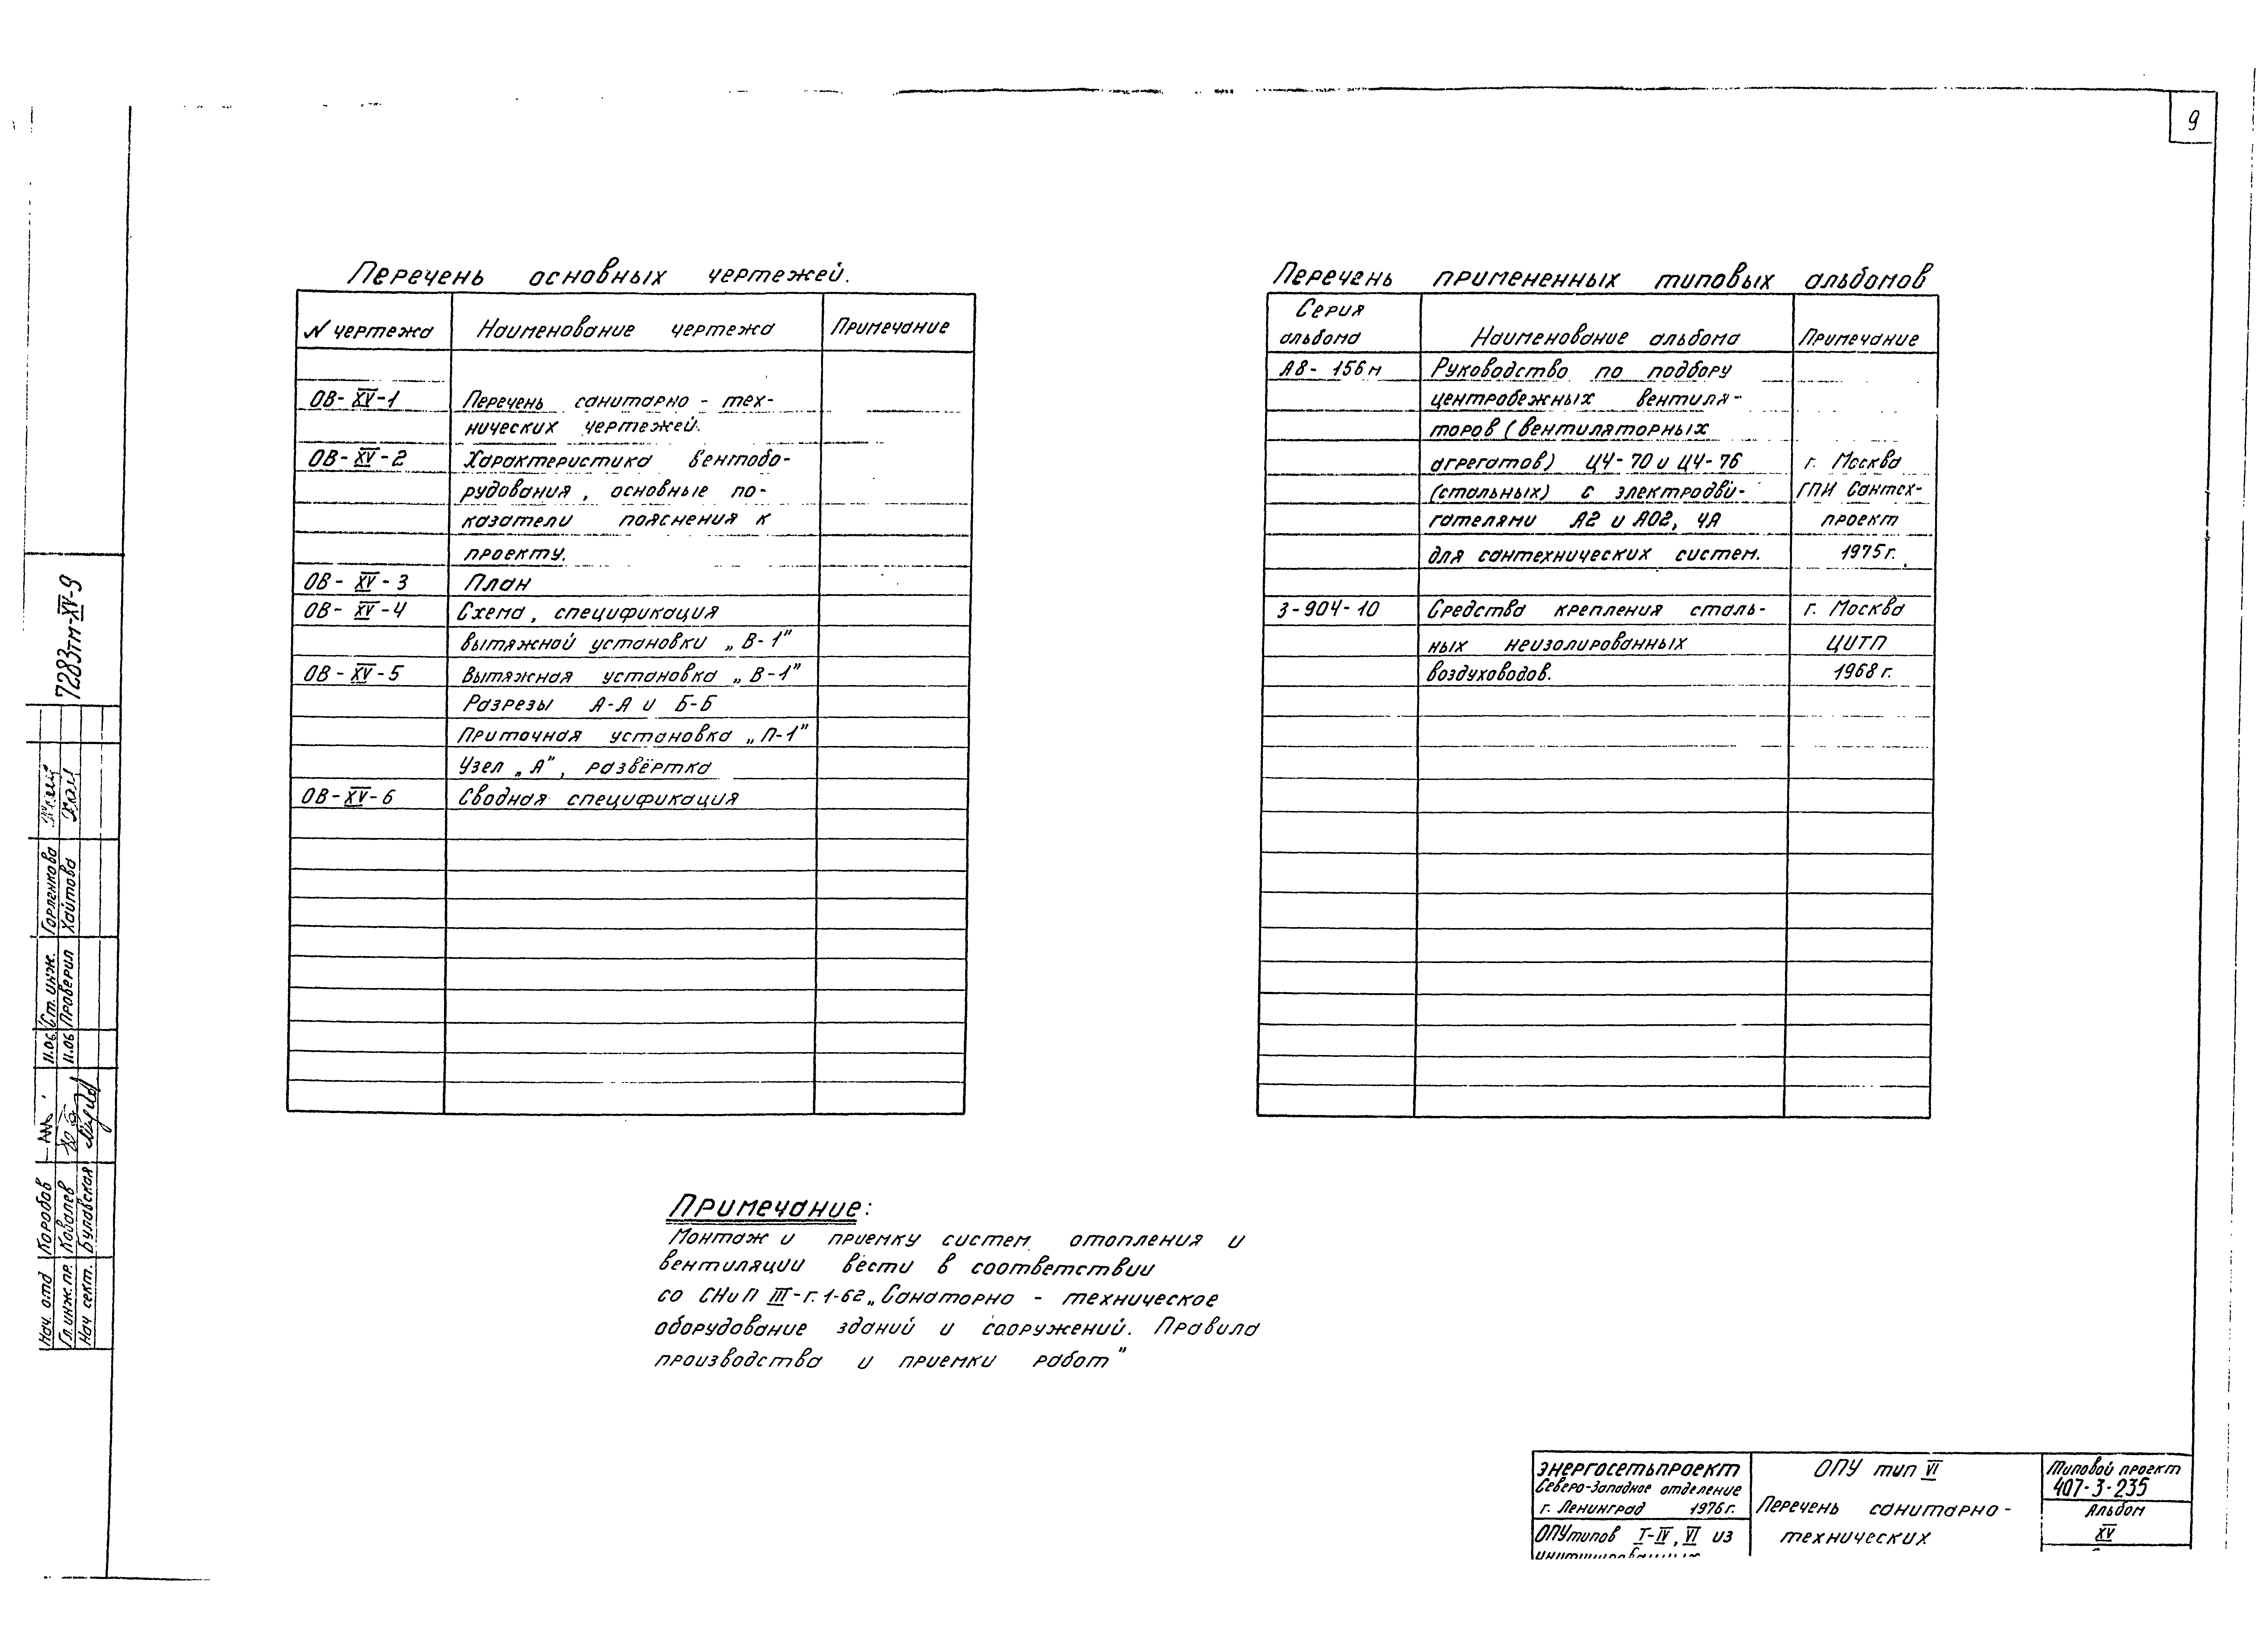 9
Перечень основных чертежей.
N чертежа Наименование чертежа Примечание
ОВ-XV-1 Перечень санитарно-тех-
нических чертежей.
ОВ-XV-2 Характеристика вентобо-
рудования, основные по-
казатели пояснения к
проекту.
ОВ-XV-3 План
ОВ-XV-4 Схема, спецификация
вытяжной установки „В-1"
ОВ-XV-5 Вытяжная установка „В-1"
Разрезы А-А и Б-Б
Приточная установка „П-1"
Узел „А", развёртка
ОВ-XV-6 Сводная спецификация
Перечень примененных типовых альбомов
Серия
альбома Наименование альбома Примечание
А8-156м Руководство по подбору
центробежных вентиля-
торов (вентиляторных
агрегатов) Ц4-70 и Ц4-76 г. Москва
(стальных) с электродви- ГПИ Сантех-
гателями А2 и АО2, 4А проект
для сантехнических систем. 1975г.
3-904-10 Средства крепления сталь- г. Москва
ных неизолированных ЦИТП
воздуховодов. 1968 г.
Примечание:
Монтаж и приемку систем отопления и
вентиляции вести в соответствии
со СНиП III-г.1-62 „Санаторно - техническое
оборудование зданий и сооружений. Правила
производства и приемки работ"
7283тм-XV-9
Нач. отд Коробов 11.06 Ст. инж. Горленкова
Гл. инж. пр. Ковалев 11.06 Проверил Хаитова
Нач сект. Булавская
Энергосетьпроект
Северо-Западное отделение
г. Ленинград 1976г.
ОПУ типов I-IV, VI из
ОПУ тип VI
Перечень санитарно-
технических
Типовой проект
407-3-235
Альбом
XV